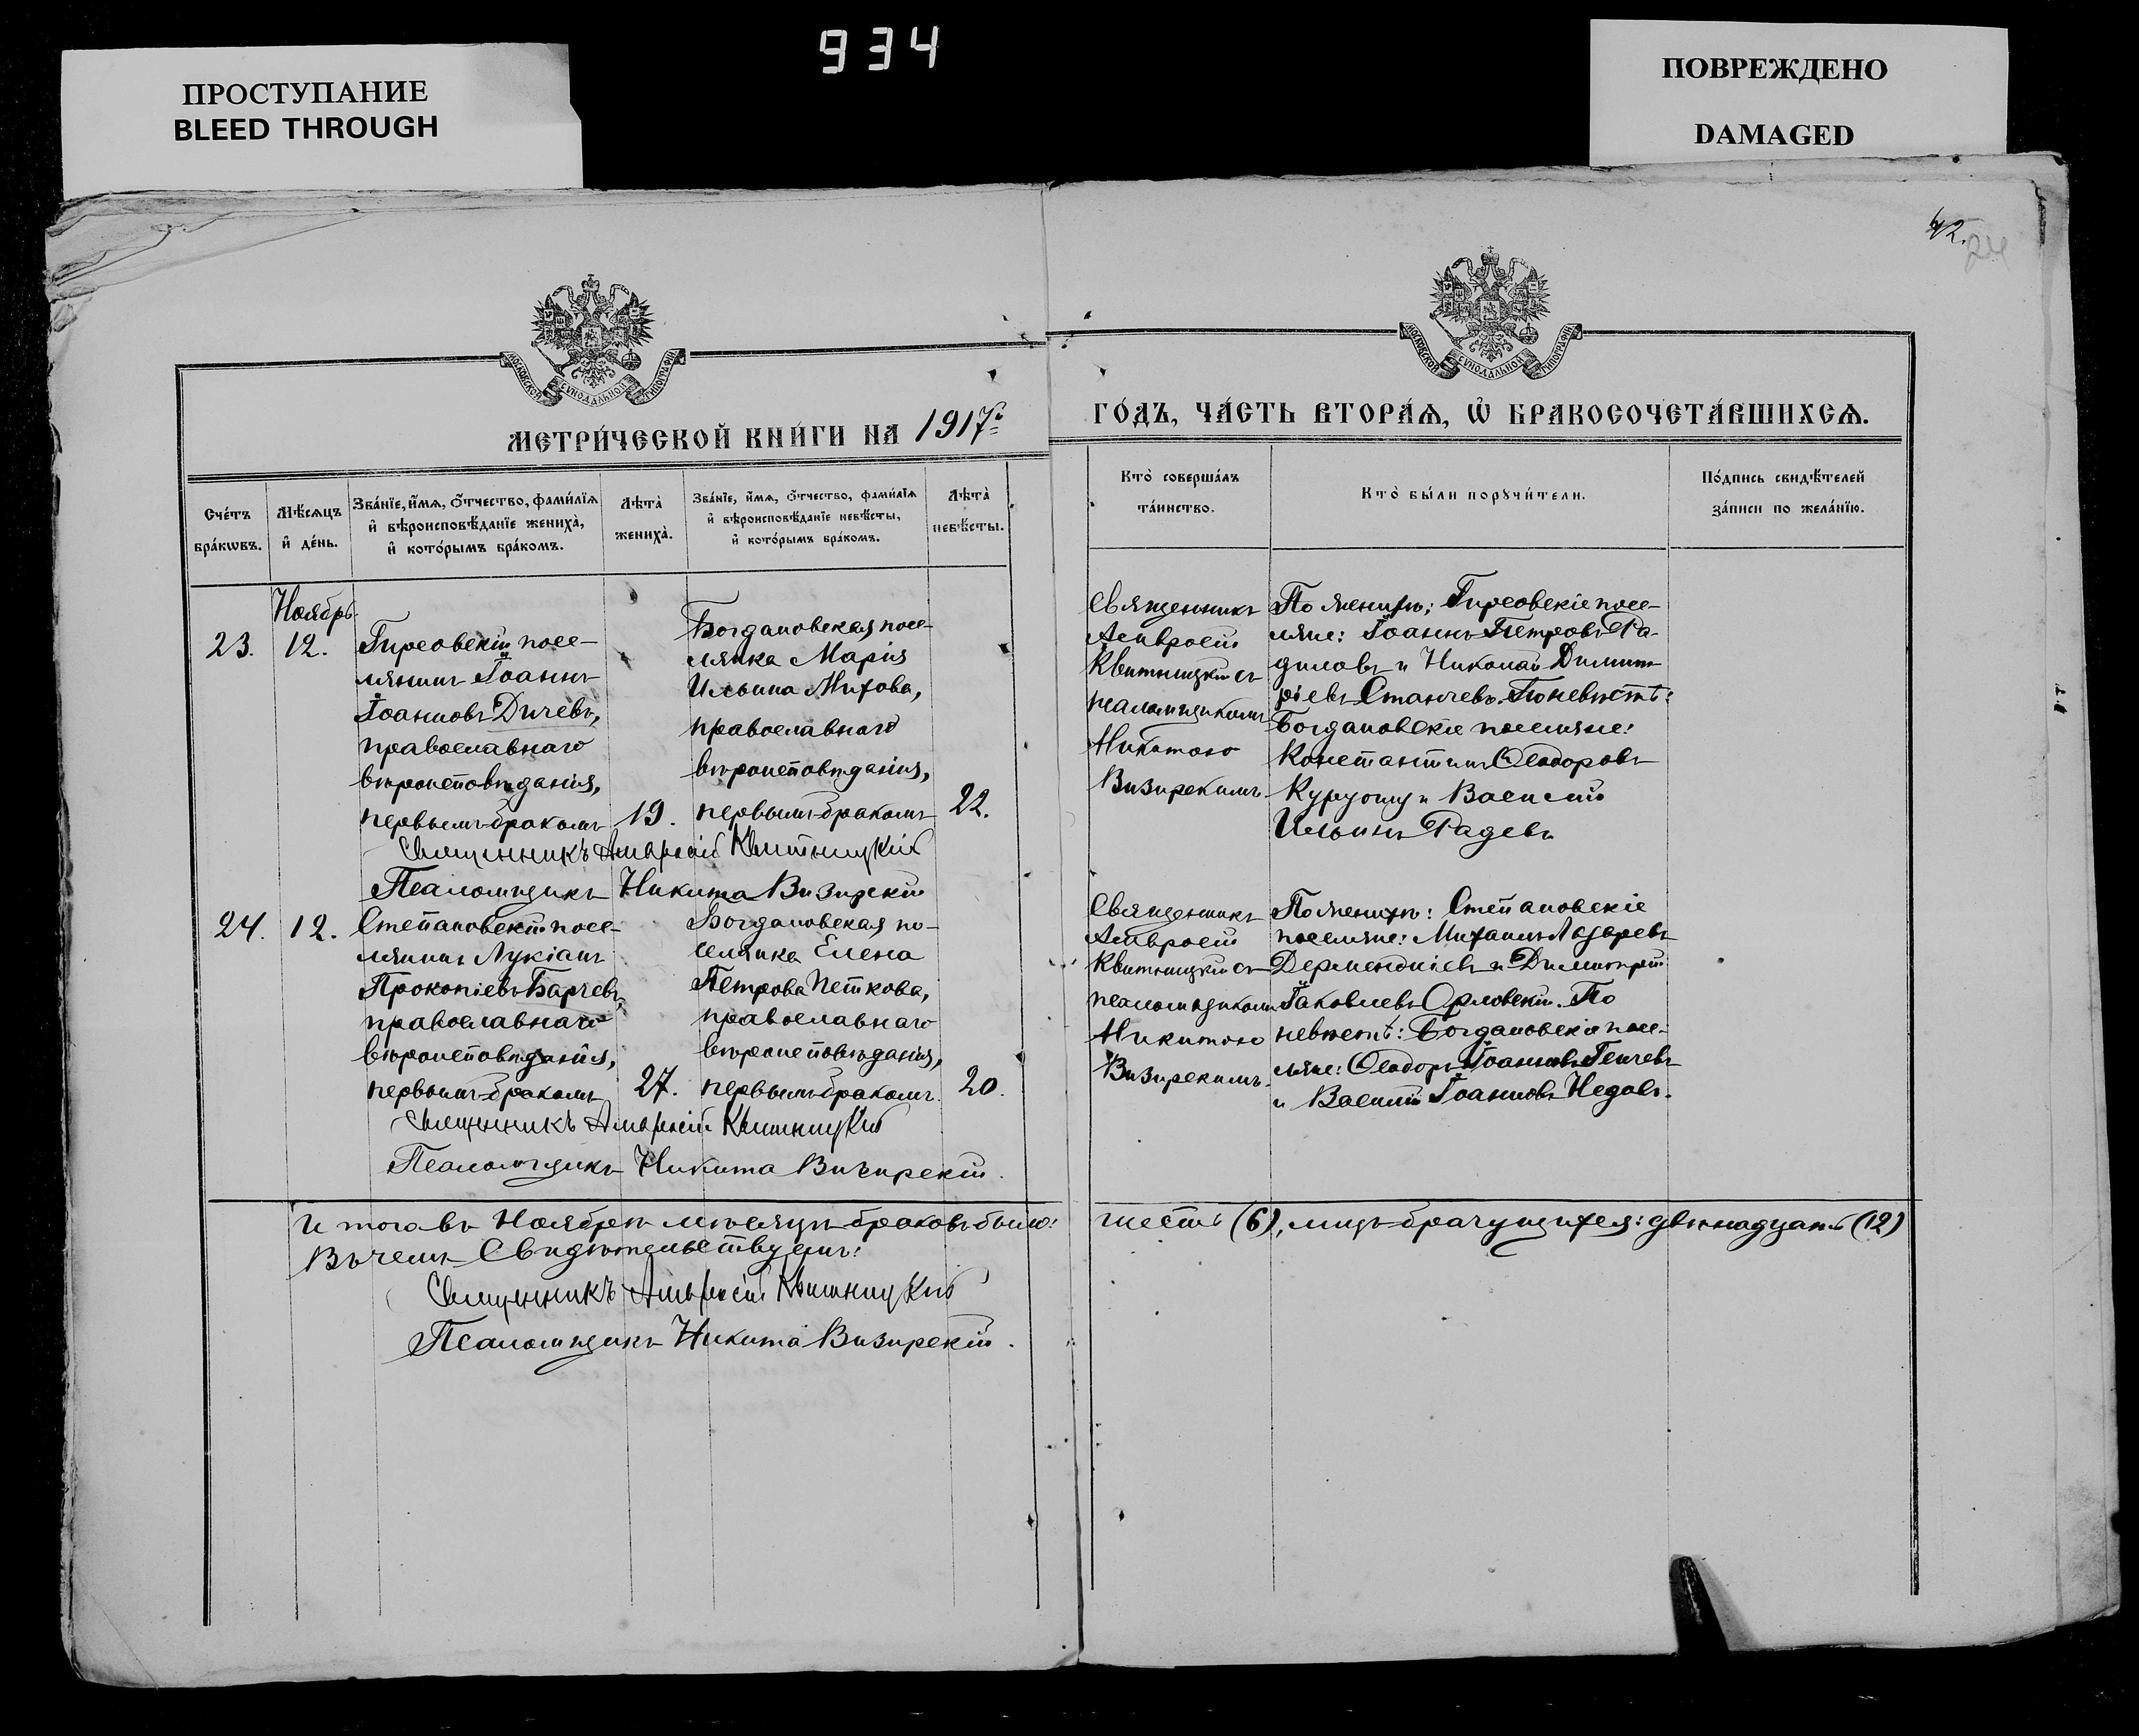 934
ПРОСТУПАНИЕ
BLEED THROUGH
ПОВРЕЖДЕНО
DAMAGED
42.
24
МОСКОВСКОЙ СѴНОДАЛЬНОЙ ТИПОГРАФІИ
МОСКОВСКОЙ СѴНОДАЛЬНОЙ ТИПОГРАФІИ
МЕТРИ́ЧЕСКОЙ КНИ́ГИ НА 1917й
ГО́ДЪ, ЧА́СТЬ ВТОРА́Ѧ, Ѽ БРАКОСОЧЕТА́ВШИХСѦ.
Сче́тъ
бра́кѡвъ.
Мѣ́сѧцъ
и҆ де́нь.
Зва́нїе, и҆́мѧ, ѻ҆́тчество, фами́лїѧ
и҆ вѣроисповѣ́данїе жениха̀,
и҆ кото́рымъ бра́комъ.
Лѣта̀
жениха̀.
Зва́нїе, и҆́мѧ, ѻ҆́тчество, фами́лїѧ
и҆ вѣроисповѣ́данїе невѣ́сты,
и҆ кото́рымъ бра́комъ.
Лѣта̀
невѣ́сты.
Кто̀ соверша́лъ
та́инство.
Кто̀ бы́ли порꙋчи́тели.
По́дпись свидѣ́телей
за́писи по жела́нїю.
Ноябрь
23.
12.
Гирсовскій посе-
лянинъ Іоаннъ
Іоанновъ Дичевъ,
православнаго
вѣроисповѣданія,
первымъ бракомъ
19.
Богдановская посе-
лянка Марія
Ильина Митова,
православнаго
вѣроисповѣданія,
первымъ бракомъ
22.
Священникъ
Амвросій
Квитницкій съ
псаломщикомъ
Никитою
Визирскимъ
По женихѣ: Гирсовскіе посе-
ляне: Іоаннъ Петровъ Ра-
диловъ и Николай Димит-
ріевъ Станчевъ. По невѣстѣ:
Богдановскіе поселяне:
Константинъ Ѳеодоровъ
и Василій
Ильинъ Радевъ
Священникъ Амвросій Квитницкій
Псаломщикъ Никита Визирскій
24.
12.
Степановскій посе-
лянинъ Лукіанъ
Прокопіевъ Барчевъ,
православнаго
вѣроисповѣданія,
первымъ бракомъ
27.
Богдановская по-
селянка Елена
Петрова Петкова,
православнаго
вѣроисповѣданія,
первымъ бракомъ.
20.
Священникъ
Амвросій
Квитницкій съ
псаломщикомъ
Никитою
Визирскимъ.
По женихѣ: Степановскіе
поселяне: Михаилъ Лазаревъ
и Димитрій
Іаковлевъ Орловскій. По
невѣстѣ: Богдановскіе посе-
ляне: Ѳеодоръ Іоанновъ Генчевъ
и Василій Іоанновъ Недовъ.
Священникъ Амвросій Квитницкій
Псаломщикъ Никита Визирскій.
Итого въ Ноябрѣ мѣсяцѣ браковъ было: шесть (6), лицъ брачущихся: двѣнадцать (12)
Въ чемъ Свидѣтельствуемъ:
Священникъ Амвросій Квитницкій
Псаломщикъ Никита Визирскій.